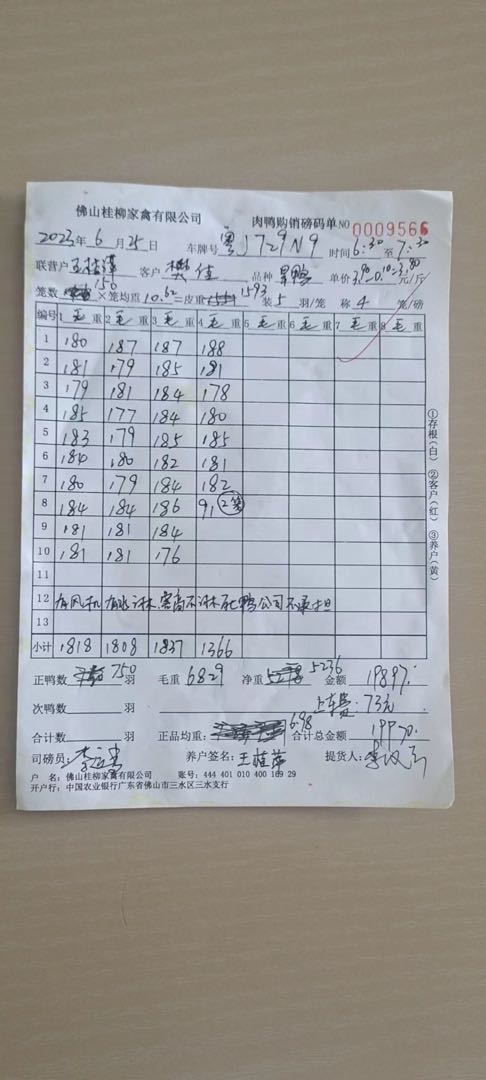 佛山桂柳家禽有限公司 肉鸭购销磅码单 NO 0009566
2023年 6 月 25 日 车牌号 粤J729N9 时间 6:30 至 7:30
联营户 客户 樊佳 品种 单价 3.90-0.10=3.80 元/斤
笼数 150 ×笼均重 10.62 =皮重 1593 装 5 羽/笼 称 4 笼/磅
编号 1 毛 重 2 毛 重 3 毛 重 4 毛 重 5 毛 重 6 毛 重 7 毛 重 8 毛 重
1 180 187 187 188
2 181 179 185 181
3 179 181 184 178
4 185 177 184 180
5 183 179 185 185
6 184 180 182 181
7 180 179 184 182
8 184 184 186 91 2笼
9 181 181 184
10 181 181 176
11
12 有风机 有水淋.客商不淋死鸭公司不承担
13
小计 1818 1808 1837 1366
正鸭数 750 羽 毛重 6829 净重 5236 金额 19897.
次鸭数 羽 上车费: 73元
合计数 羽 正品均重: 6.98 合计总金额 19970.
司磅员: 养户签名: 王桂萍 提货人:
户 名:佛山桂柳家禽有限公司 账号:444 401 010 400 169 29
开户行:中国农业银行广东省佛山市三水区三水支行
①存根(白) ②客户(红) ③养户(黄)